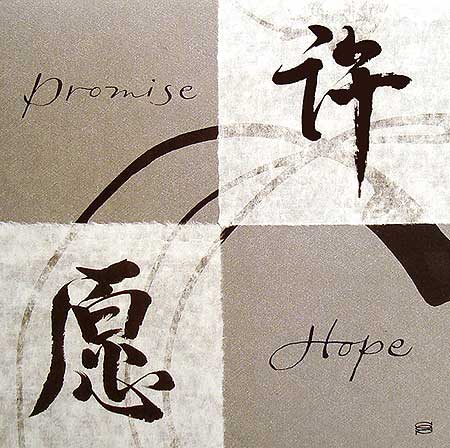 Promise
许
愿
Hope